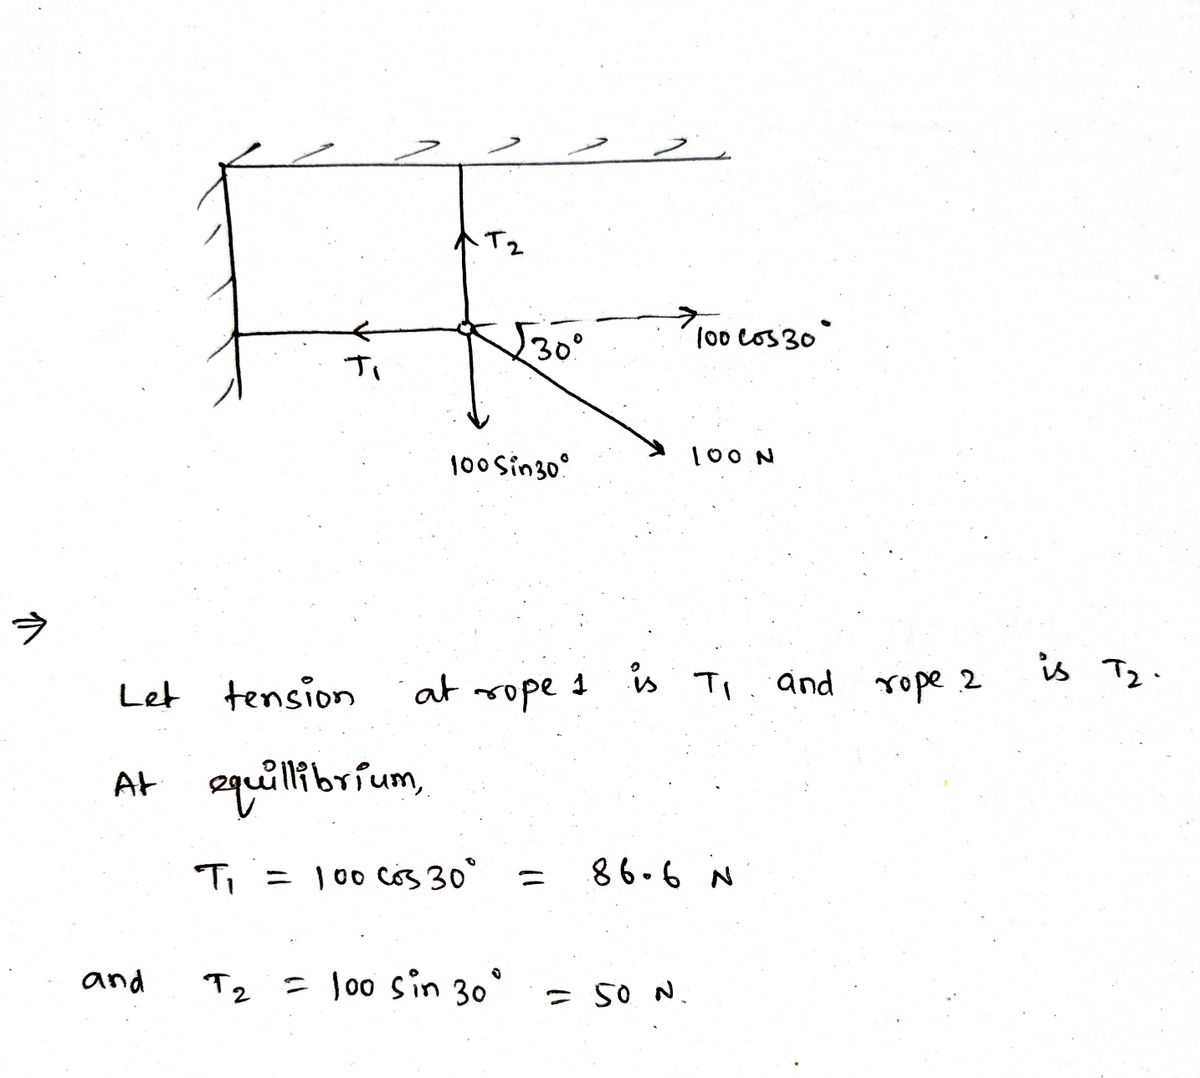 T2
30°
100 cos 30°
T1
100 Sin 30°
100 N
⇒
Let tension at rope 1 is T1 and rope 2 is T2.
At equillibrium,
T1 = 100 cos 30° = 86.6 N
and T2 = 100 sin 30° = 50 N.